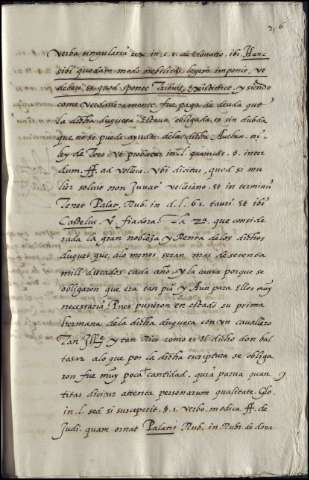 verba singularia tex in. l. 1. de donatio. ibi Hanc
sibi quodam modo necessitatem legem imponere, vt
debeat, ex quod sponte tribuit, existimet y siendo
como verdaderamente fue paga de deuda que
la dicha duquesa estaua obligada, es sin dubda
que no se puede ayudar della dicha Authen. ni
ley de Toro vt probatur in l. quamuis. §. inter
dum. ff. ad velleia. Vbi dicitur, quod si mu
lier soluit non Juuatur velleiano. et in terminis
tenet Palac. Rub. in d. l. 61. tauri. et ibi
Castellus. v. fiadora. L. 23. que conside
rada la gran nobleza y Renta de los dichos
duques que, alo menos seran mas de sesenta
mill ducados cada año, y la causa porque se
obligaron que era tan pia y aun para ellos muy
necessaria: Pues pusieron en estado su prima
hermana dela dicha duquesa con vn cauallero
tan Ill.e y tan Rico como es el dicho don bal
tasar alo que por la dicha escriptura se obliga
ron fue muy poca cantidad. quia parua quan
titas dicitur attenta personarum qualitate, Glo.
in. l. sed si susceperit. §. 1. verbo. modica. ff. de
Judi. quam ornat Palatius Rub. in Rub. de dona